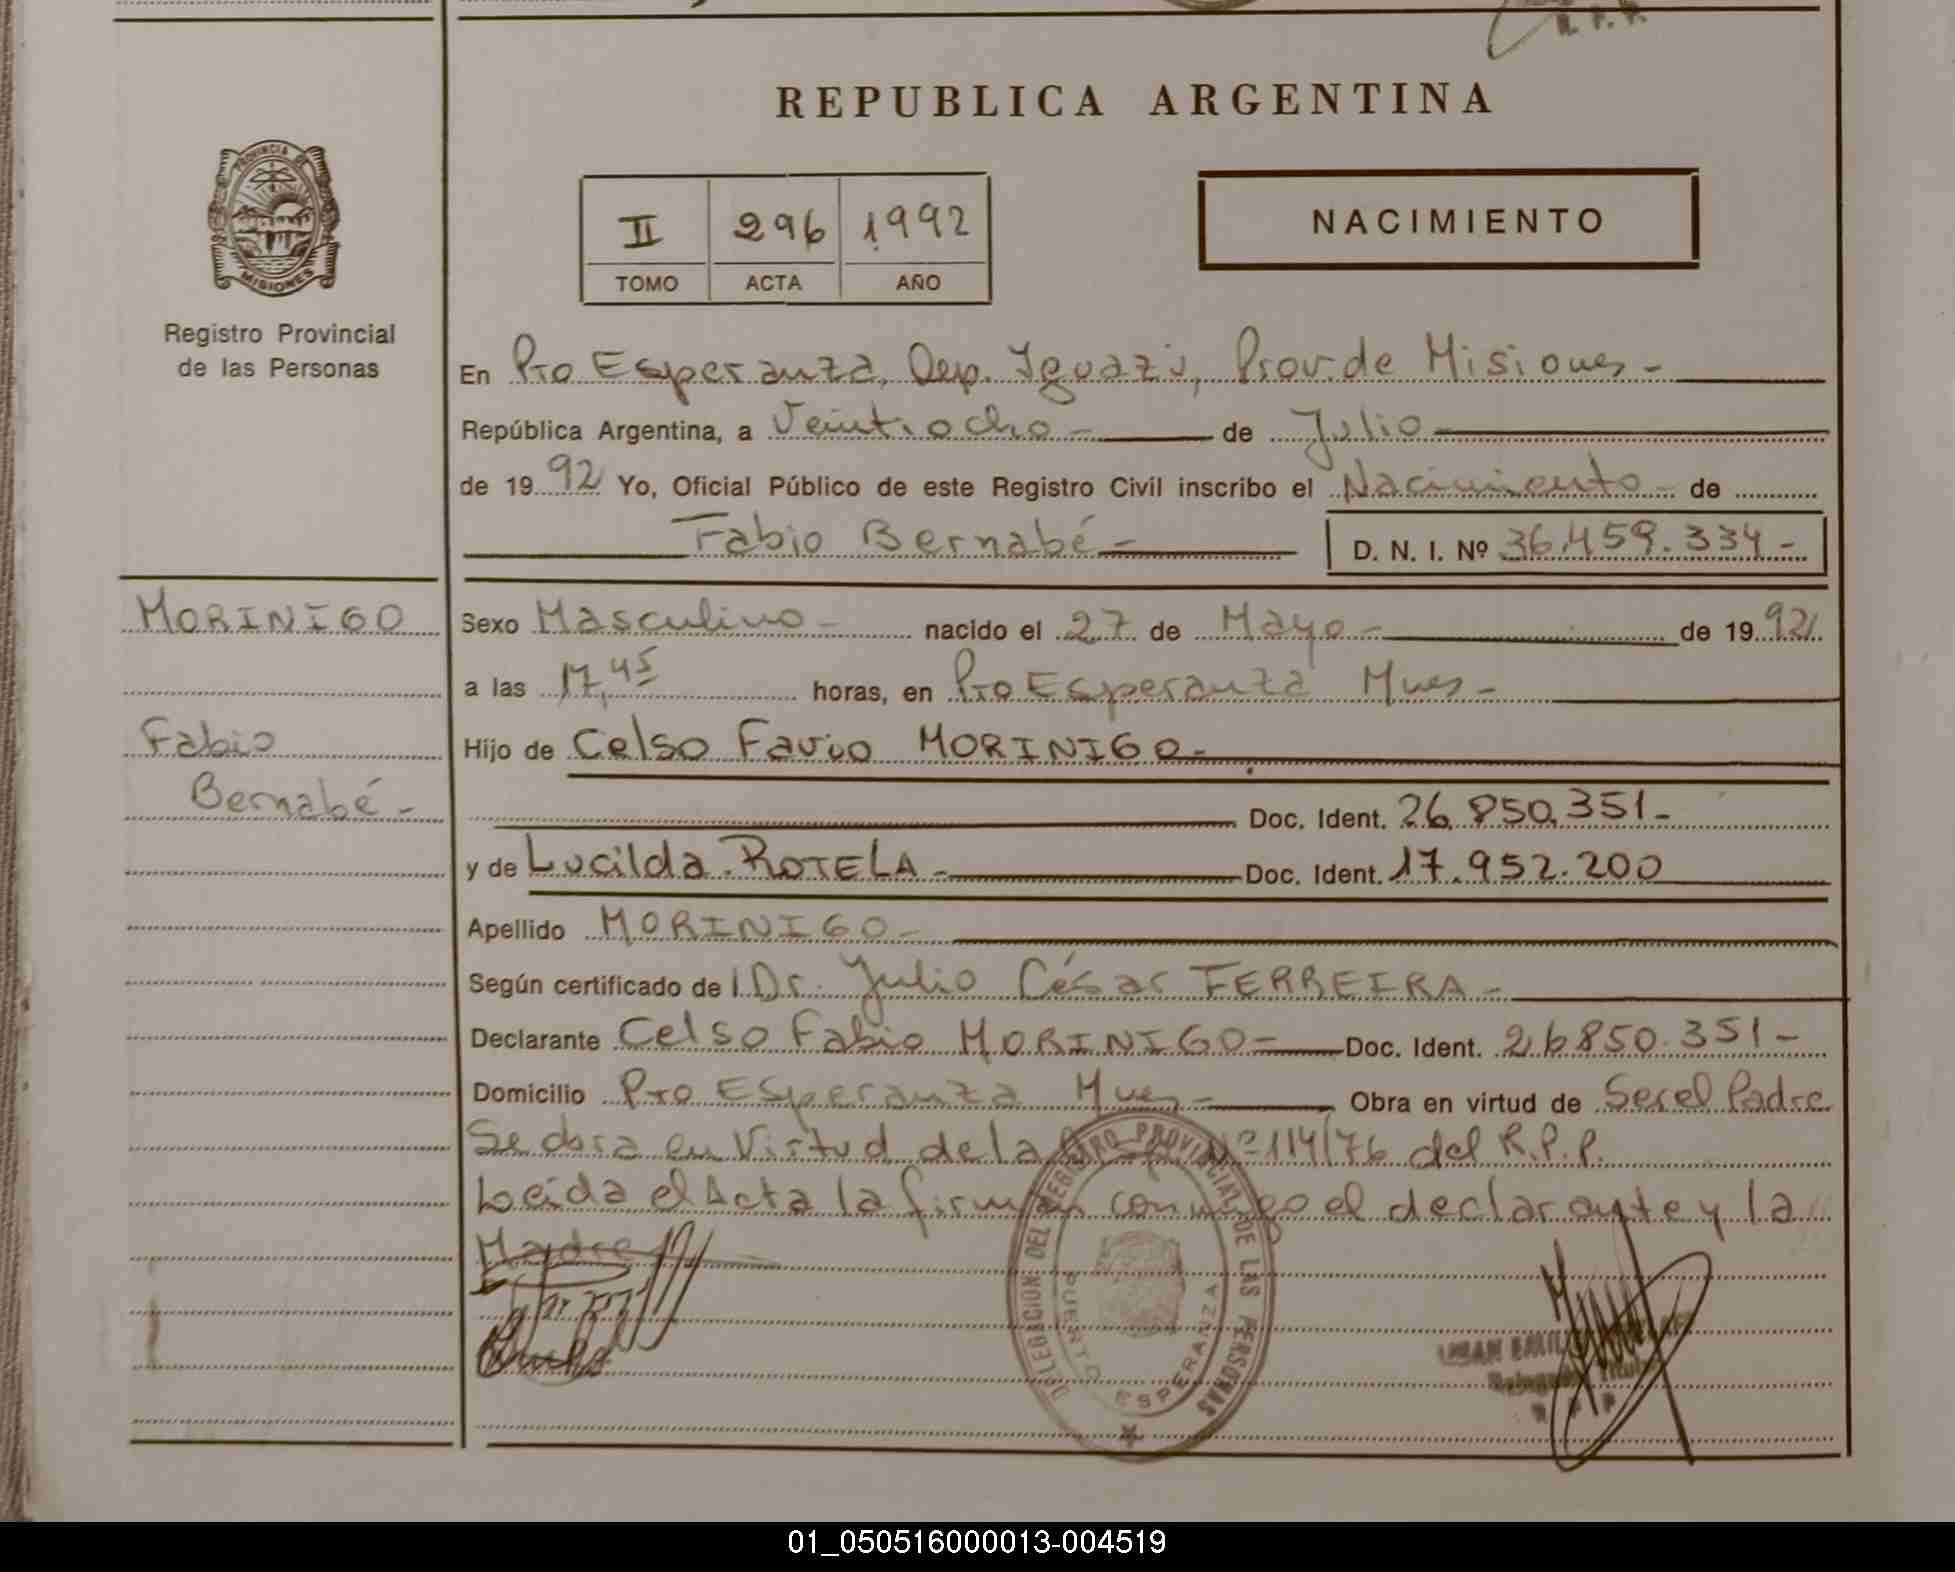 R. P. P.
REPUBLICA ARGENTINA
PROVINCIA DE
MISIONES
Registro Provincial
de las Personas
II 296 1992
TOMO ACTA AÑO
NACIMIENTO
En Pto Esperanza, Dep. Iguazú, Prov. de Misiones -
República Argentina, a Veintiocho - de Julio
de 1992 Yo, Oficial Público de este Registro Civil inscribo el Nacimiento de
Fabio Bernabé - D. N. I. Nº 36.459.334 -
MORINIGO
Fabio
Bernabé -
Sexo Masculino - nacido el 27 de Mayo - de 1992
a las 17,45 horas, en Pto Esperanza Mnes -
Hijo de Celso Favio MORINIGO -
Doc. Ident. 26.850.351 -
y de Lucilda ROTELA - Doc. Ident. 17.952.200
Apellido MORINIGO -
Según certificado del Dr. Julio César FERREIRA -
Declarante Celso Fabio MORINIGO - Doc. Ident. 26850.351 -
Domicilio Pto Esperanza Mnes - Obra en virtud de Ser el Padre
Se obra en Virtud de la Nº 114/76 del R.P.P.
Leida el Acta la firman conmigo el declarante y la
Madre
DELEGACION DEL REGISTRO PROVINCIAL DE LAS PERSONAS
PUERTO ESPERANZA
01_050516000013-004519